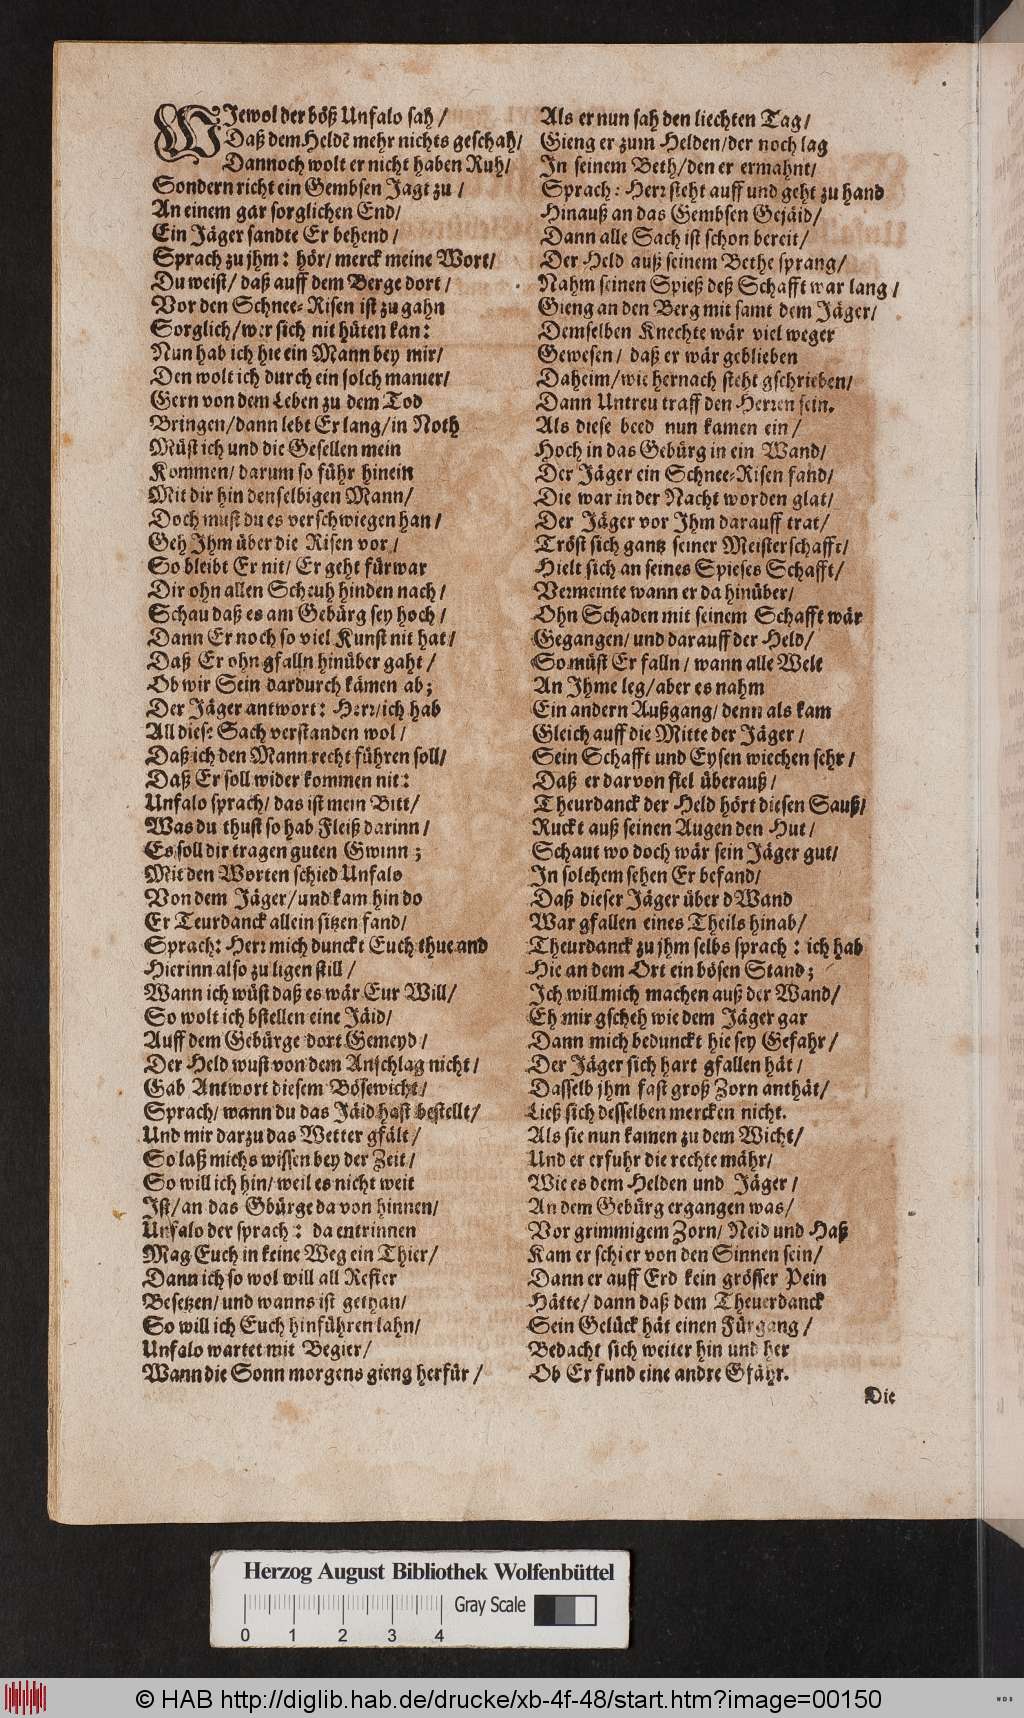 WJewol der böß Unfalo sah /
Daß dem Heldē mehr nichts geschah/
Dannoch wolt er nicht haben Ruh/
Sondern richt ein Gembsen Jagt zu /
An einem gar sorglichen End/
Ein Jäger sandte Er behend /
Sprach zu jhm: hör/ merck meine Wort/
Du weist/ daß auff dem Berge dort /
Vor den Schnee-Risen ist zu gahn
Sorglich/wer sich nit hüten kan:
Nun hab ich hie ein Mann bey mir/
Den wolt ich durch ein solch manier/
Gern von dem Leben zu dem Tod
Bringen/dann lebt Er lang/in Noth
Müst ich und die Gesellen mein
Kommen/ darum so führ hinein
Mit dir hin denselbigen Mann/
Doch must du es verschwiegen han /
Geh Jhm über die Risen vor /
So bleibt Er nit/ Er geht fürwar
Dir ohn allen Scheuh hinden nach /
Schau daß es am Gebürg sey hoch /
Dann Er noch so viel Kunst nit hat /
Daß Er ohn gfalln hinüber gaht /
Ob wir Sein dardurch kämen ab;
Der Jäger antwort: Herr/ich hab
All diese Sach verstanden wol /
Daß ich den Mann recht führen soll/
Daß Er soll wider kommen nit:
Unfalo sprach/ das ist mein Bitt/
Was du thust so hab Fleiß darinn /
Es soll dir tragen guten Gwinn;
Mit den Worten schied Unfalo
Von dem Jäger/und kam hin do
Er Teurdanck allein sitzen fand/
Sprach: Herr mich dunckt Euch thue and
Hierinn also zu ligen still /
Wann ich wüst daß es wär Eur Will/
So wolt ich bstellen eine Jäid/
Auff dem Gebürge dort Gemeyd /
Der Held wust von dem Anschlag nicht /
Gab Antwort diesem Bösewicht/
Sprach/ wann du das Jäid hast bestellt/
Und mir darzu das Wetter gfält /
So laß michs wissen bey der Zeit /
So will ich hin/ weil es nicht weit
Ist/an das Gbürge da von hinnen/
Unfalo der sprach: da entrinnen
Mag Euch in keine Weg ein Thier/
Dann ich so wol will all Refier
Besetzen/ und wanns ist gethan/
So will ich Euch hinführen lahn/
Unfalo wartet mit Begier/
Wann die Sonn morgens gieng herfür /
Als er nun sah den liechten Tag/
Gieng er zum Helden/der noch lag
In seinem Beth/den er ermahnt/
Sprach: Herr steht auff und geht zu hand
Hinauß an das Gembsen Gejäid/
Dann alle Sach ist schon bereit/
Der Held auß seinem Bethe sprang/
Nahm seinen Spieß deß Schafft war lang /
Gieng an den Berg mit samt dem Jäger/
Demselben Knechte wär viel weger
Gewesen/ daß er wär geblieben
Daheim/wie hernach steht gschrieben/
Dann Untreu traff den Herren sein.
Als diese beed nun kamen ein /
Hoch in das Gebürg in ein Wand/
Der Jäger ein Schnee-Risen fand/
Die war in der Nacht worden glat/
Der Jäger vor Jhm darauff trat/
Tröst sich gantz seiner Meisterschafft/
Hielt sich an seines Spieses Schafft/
Vermeinte wann er da hinüber/
Ohn Schaden mit seinem Schafft wär
Gegangen/ und darauff der Held/
So müst Er falln / wann alle Welt
An Jhme leg/aber es nahm
Ein andern Außgang/ denn als kam
Gleich auff die Mitte der Jäger /
Sein Schafft und Eysen wiechen sehr /
Daß er darvon fiel überauß /
Theurdanck der Held hört diesen Sauß/
Ruckt auß seinen Augen den Hut /
Schaut wo doch wär sein Jäger gut/
In solchem sehen Er befand/
Daß dieser Jäger über d Wand
War gfallen eines Theils hinab/
Theurdanck zu jhm selbs sprach: ich hab
Hie an dem Ort ein bösen Stand;
Jch will mich machen auß der Wand/
Eh mir gscheh wie dem Jäger gar
Dann mich bedunckt hie sey Gefahr /
Der Jäger sich hart gfallen hät /
Dasselb jhm fast groß Zorn anthät/
Ließ sich desselben mercken nicht.
Als sie nun kamen zu dem Wicht/
Und er erfuhr die rechte mähr/
Wie es dem Helden und Jäger /
An dem Gebürg ergangen was/
Vor grimmigem Zorn/ Neid und Haß
Kam er schier von den Sinnen sein/
Dann er auff Erd kein grösser Pein
Hätte/ dann daß dem Theuerdanck
Sein Gelück hät einen Fürgang /
Bedacht sich weiter hin und her
Ob Er fund eine andre Gfähr.
Die
Herzog August Bibliothek Wolfenbüttel
0 1 2 3 4 Gray Scale
© HAB http://diglib.hab.de/drucke/xb-4f-48/start.htm?image=00150